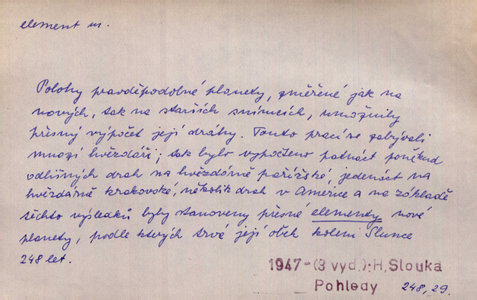 element m.
Polohy pravděpodobné planety, změřené jak na
nových, tak na starších snímcích, umožnily
přesný výpočet její dráhy. Touto prací se zabývali
mnozí hvězdáři; tak bylo vypočteno patnáct poněkud
odlišných drah na hvězdárně pařížské, jedenáct na
hvězdárně krakovské, několik drah v Americe a na základě
těchto výsledků byly stanoveny přesné elementy nové
planety, podle kterých trvá její oběh kolem Slunce
248 let.
1947-(3 vyd.):H. Slouka
Pohledy 248, 29.